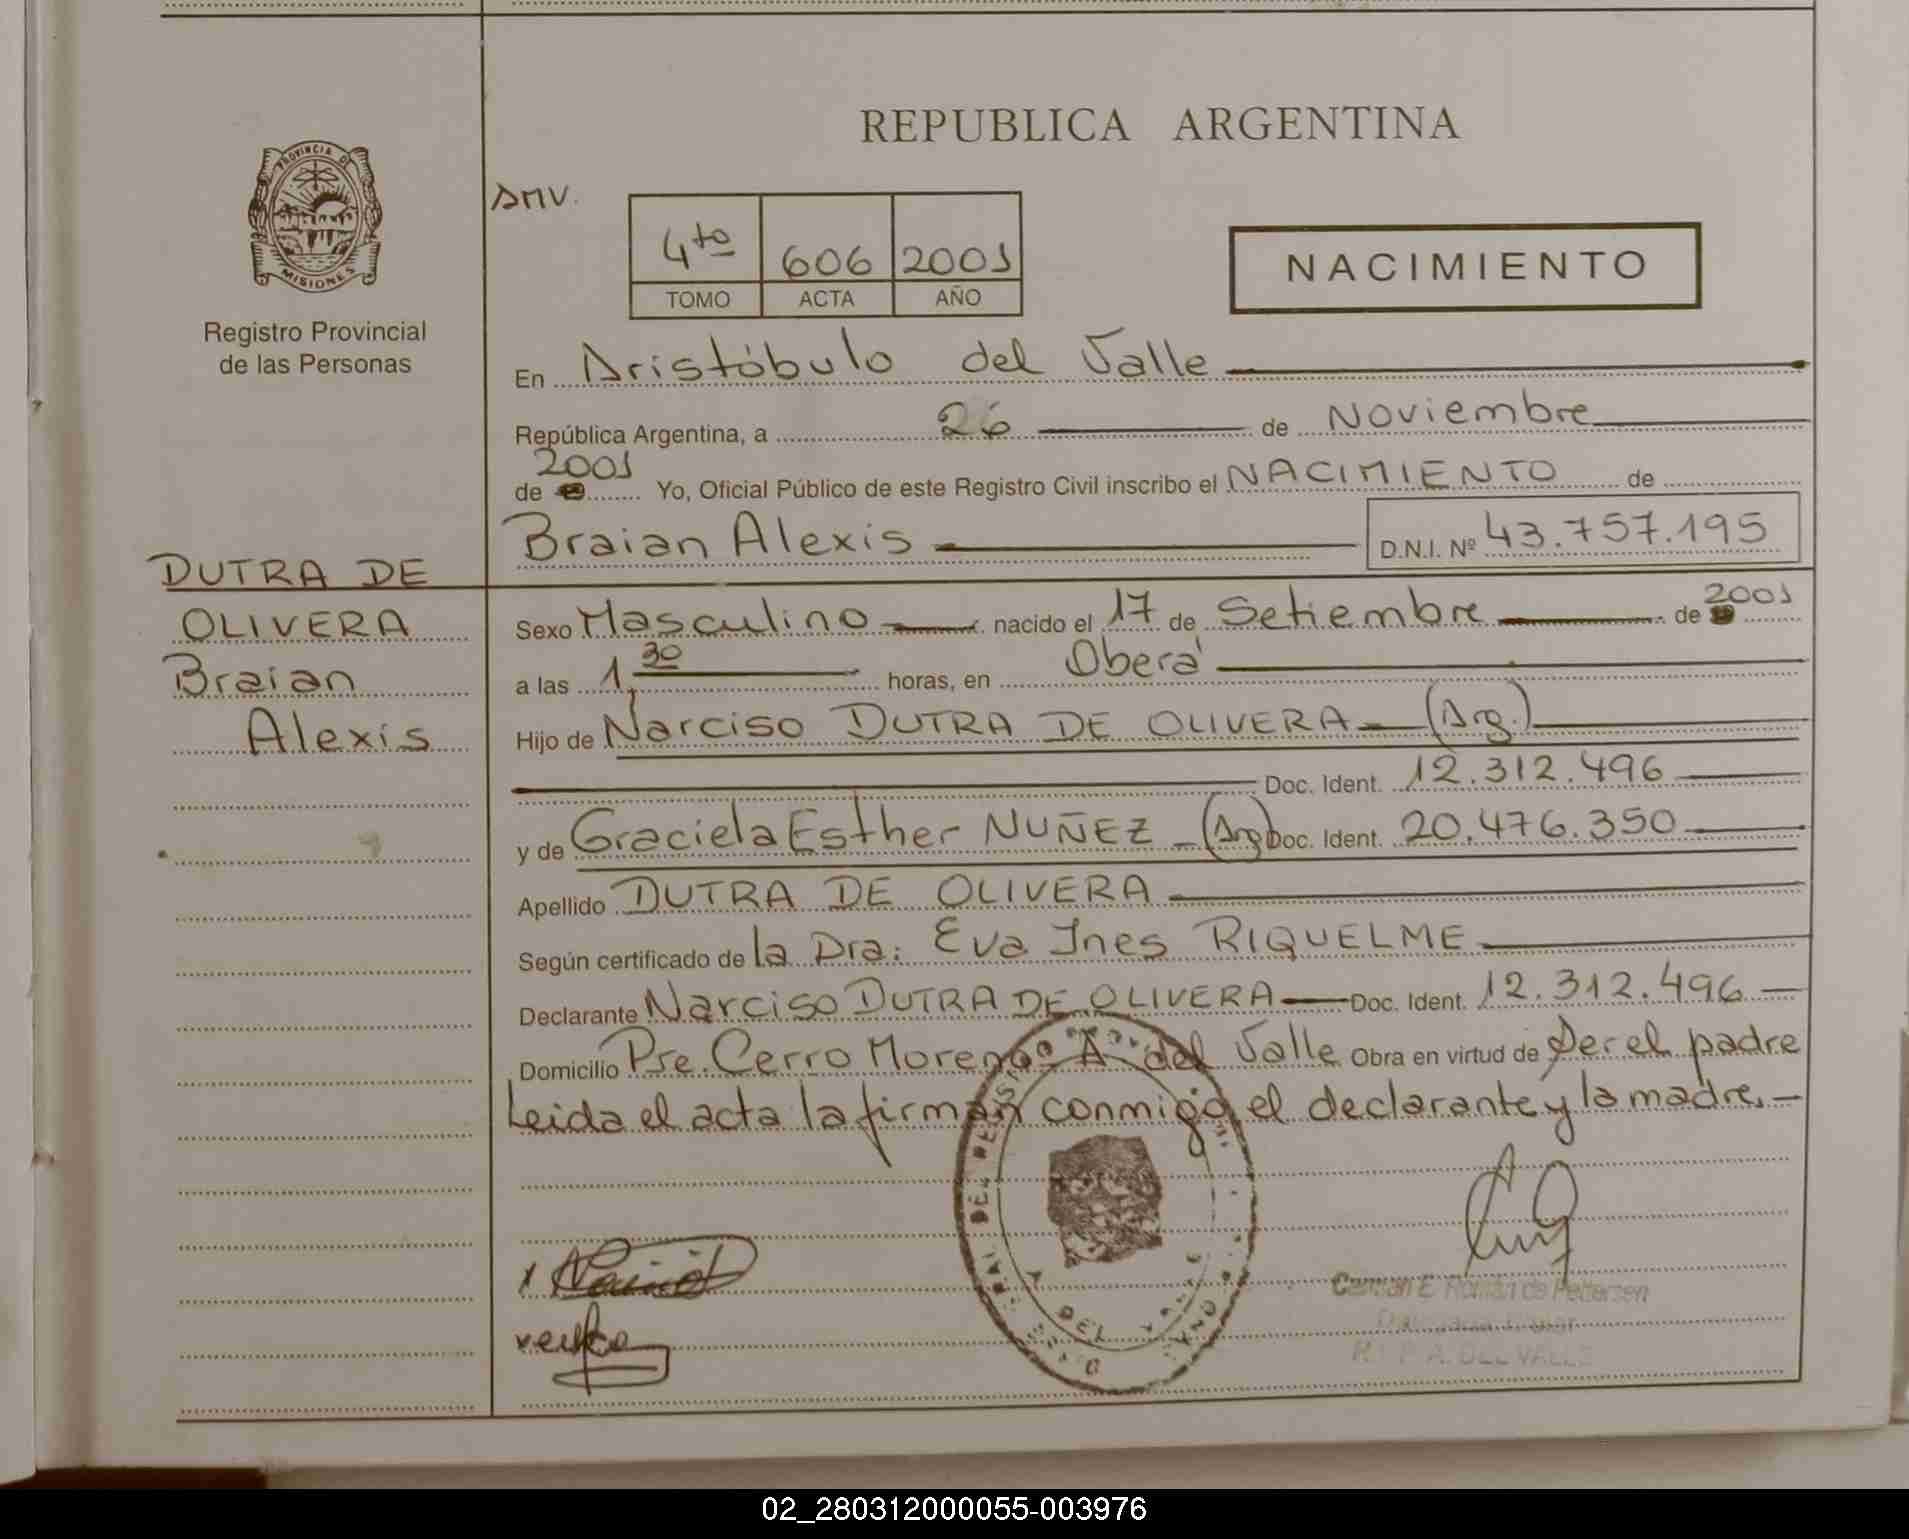 REPUBLICA ARGENTINA
PROVINCIA DE
MISIONES
Registro Provincial
de las Personas
AMV.
4to 606 2001
TOMO ACTA AÑO
NACIMIENTO
En Aristóbulo del Valle
República Argentina, a 26 de Noviembre
de 2001 Yo, Oficial Público de este Registro Civil inscribo el NACIMIENTO de
Braian Alexis D.N.I. Nº 43.757.195
DUTRA DE
OLIVERA
Braian
Alexis
Sexo Masculino nacido el 17 de Setiembre de 2001
a las 1,30 horas, en Oberá
Hijo de Narciso DUTRA DE OLIVERA (Arg.)
Doc. Ident. 12.312.496
y de Graciela Esther NUÑEZ (Arg) Doc. Ident. 20.476.350
Apellido DUTRA DE OLIVERA
Según certificado de la Dra: Eva Ines RIQUELME
Declarante Narciso DUTRA DE OLIVERA Doc. Ident. 12.312.496
Domicilio Pje. Cerro Moreno A del Valle Obra en virtud de Ser el padre
Leida el acta la firman conmigo el declarante y la madre.
E. Román de Pettersen
A. DEL VALLE
02_280312000055-003976